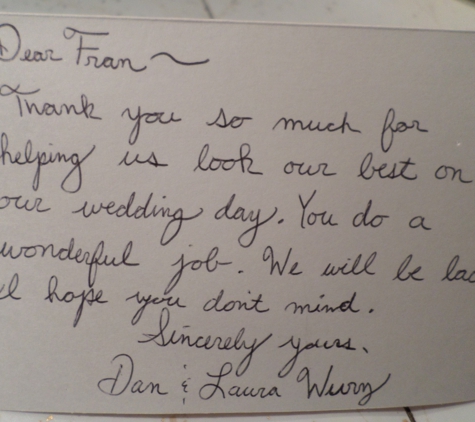 Dear Fran ~
Thank you so much for
helping us look our best on
our wedding day. You do a
wonderful job. We will be
I hope you don't mind.
Sincerely yours,
Dan & Laura